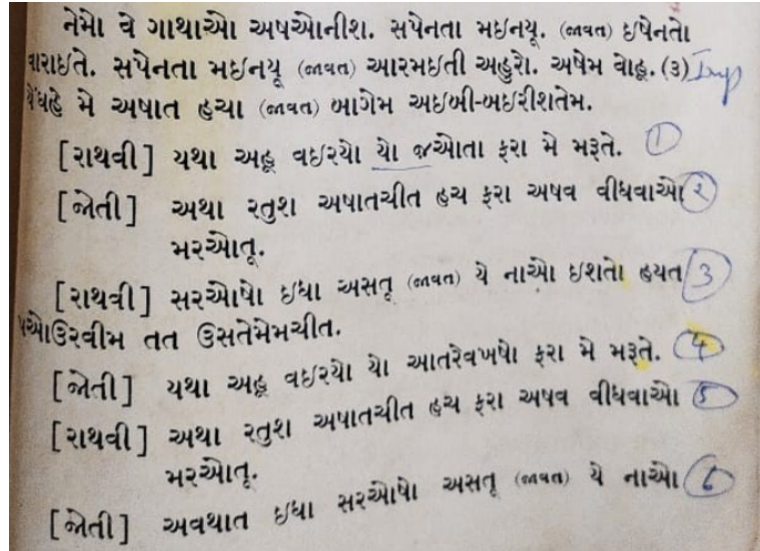 નેમો વે ગાથાઓ અષઓનીશ. સપેનતા મઇનયૂ. (જાવત) ઇષેનતો
વારાઇતે. સપેનતા મઇનયૂ (જાવત) આરમઇતી અહુરો. અષેમ વોહૂ. (૩) Imp
યેંધહે મે અષાત હચા (જાવત) બાગેમ અઇબી-બઇરીશતેમ.
[રાથવી] યથા અહૂ વઇરયો યો જઓતા ફરા મે મરૂતે. ૧
[જોતી] અથા રતુશ અષાતચીત હચ ફરા અષવ વીધવાઓ ૨
મરઓતૂ.
[રાથવી] સરઓષો ઇધા અસતૂ (જાવત) યે નાઓ ઇશતો હયત 3
પઓઉરવીમ તત ઉસતેમેમચીત.
[જોતી] યથા અહૂ વઇરયો યો આતરેવખષો ફરા મે મરૂતે. ૪
[રાથવી] અથા રતુશ અષાતચીત હચ ફરા અષવ વીધવાઓ ૫
મરઓતૂ.
[જોતી] અવથાત ઇધા સરઓષો અસતૂ (જાવત) યે નાઓ ૬